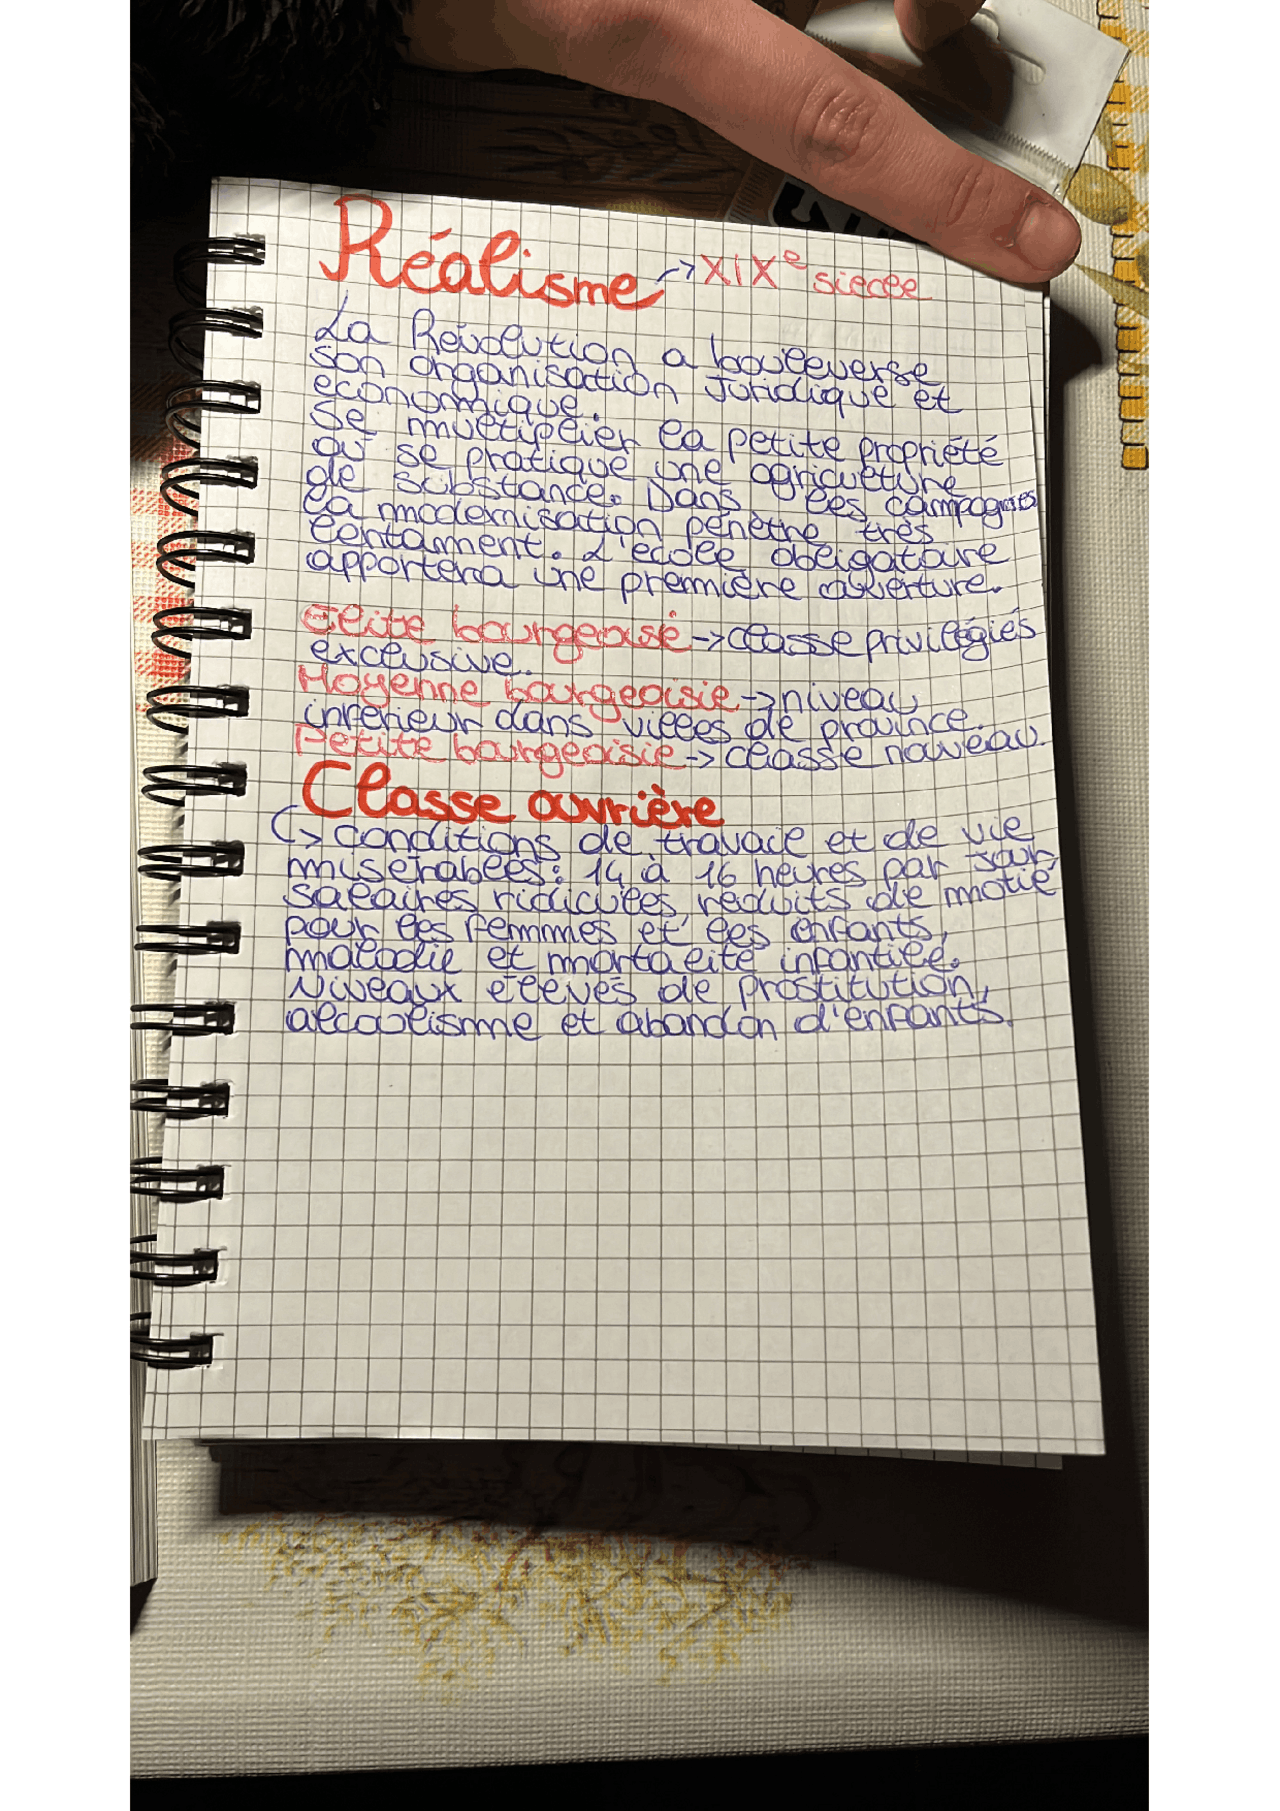 Réalisme → XIXe siècle
La Révolution a bouleversé
son organisation juridique et
économique.
Se multiplier la petite propriété
où se pratique une agriculture
de substance. Dans les campagnes
la modernisation pénètre très
lentamment. L'école obligatoire
apportera une première ouverture.
Elite bourgeoisie → classe privilégiés
exclusive.
Moyenne bourgeoisie → niveau
inférieur dans villes de province.
Petite bourgeoisie → classe nouveau.
Classe ouvrière
↳ conditions de travail et de vie
misérables: 14 à 16 heures par jour,
salaires ridicules, réduits de motié
pour les femmes et les enfants,
maladie et mortalité infantile.
Niveaux élevés de prostitution,
alcoolisme et abandon d'enfants.